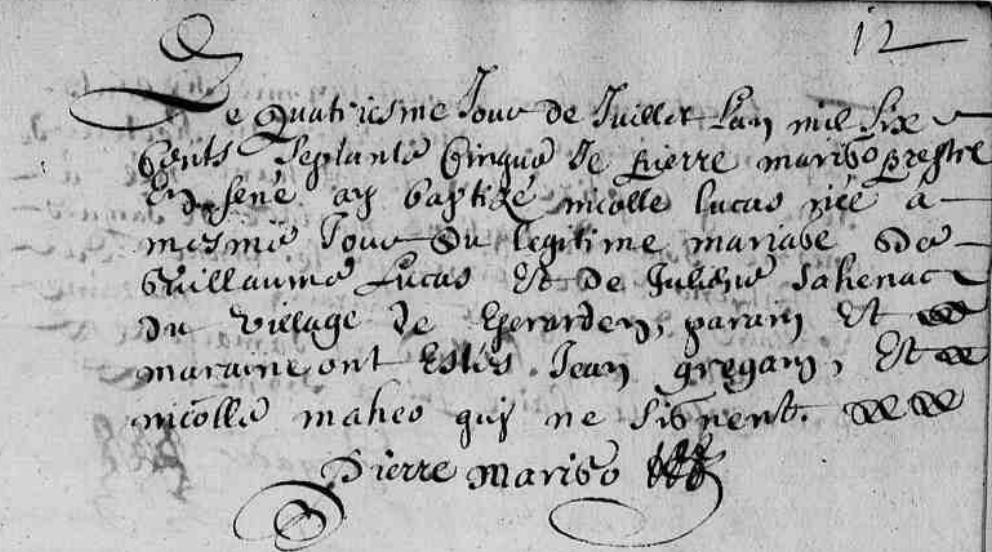 12
Le Quatriesme Jour de Juillet Lan mil Six
Cents Septante Cinque Je Pierre marigo prestre
De sené ay baptizé nicolle lucas née á
mesme Jour Du legitime mariage de
Guillaume Lucas Et de Julienne Jahenac
Du village de Gerarden, parain Et
maraine ont Estés Jean gregam, Et
nicolle maheo quy ne signent.
Pierre Marigo